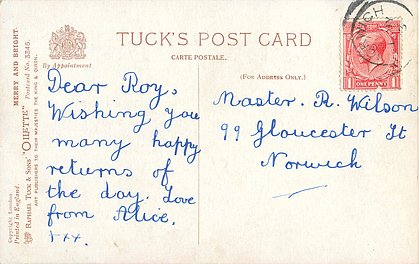 TUCK'S POST CARD
CARTE POSTALE.
By Appointment
(FOR ADDRESS ONLY.)
Dear Roy,
Wishing you
many happy
returns of
the day. Love
from Alice.
xxx.
Master. R. Wilson
99 Gloucester St
Norwich
ONE PENNY
MERRY AND BRIGHT.
"OILETTE" Postcard No. 3545.
RAPHAEL TUCK & SONS'
ART PUBLISHERS TO THEIR MAJESTIES THE KING & QUEEN.
Copyright London.
Printed in England.